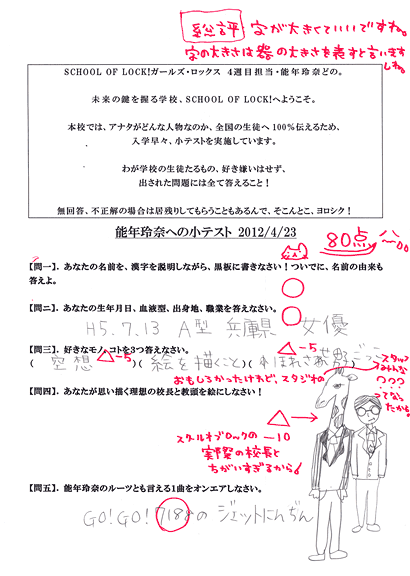 総評 字が大きくていいですね。
字の大きさは器の大きさを表すと言いますしね。
SCHOOL OF LOCK!ガールズ・ロックス 4週目担当・能年玲奈どの。
未来の鍵を握る学校、SCHOOL OF LOCK!へようこそ。
本校では、アナタがどんな人物なのか、全国の生徒へ100%伝えるため、
入学早々、小テストを実施しています。
わが学校の生徒たるもの、好き嫌いはせず、
出された問題には全て答えること!
無回答、不正解の場合は居残りしてもらうこともあるんで、そこんとこ、ヨロシク!
能年玲奈への小テスト 2012/4/23
80点
【問一】. あなたの名前を、漢字を説明しながら、黒板に書きなさい!ついでに、名前の由来も
答えよ。
【問二】. あなたの生年月日、血液型、出身地、職業を答えなさい。
H5.7.13 A型 兵庫県 女優
【問三】. 好きなモノ・コトを3つ答えなさい。
-5
(空想)(絵を描くこと)(
-5
おもしろかったけれど、スタジオの
スタッフ
みんな
???
ってなっ
たから。
【問四】. あなたが思い描く理想の校長と教頭を絵にしなさい!
スクールオブロックの
-10
実際の校長と
ちがいすぎるから!
【問五】. 能年玲奈のルーツとも言える1曲をオンエアしなさい。
GO!GO!7188の ジェットにんぢん